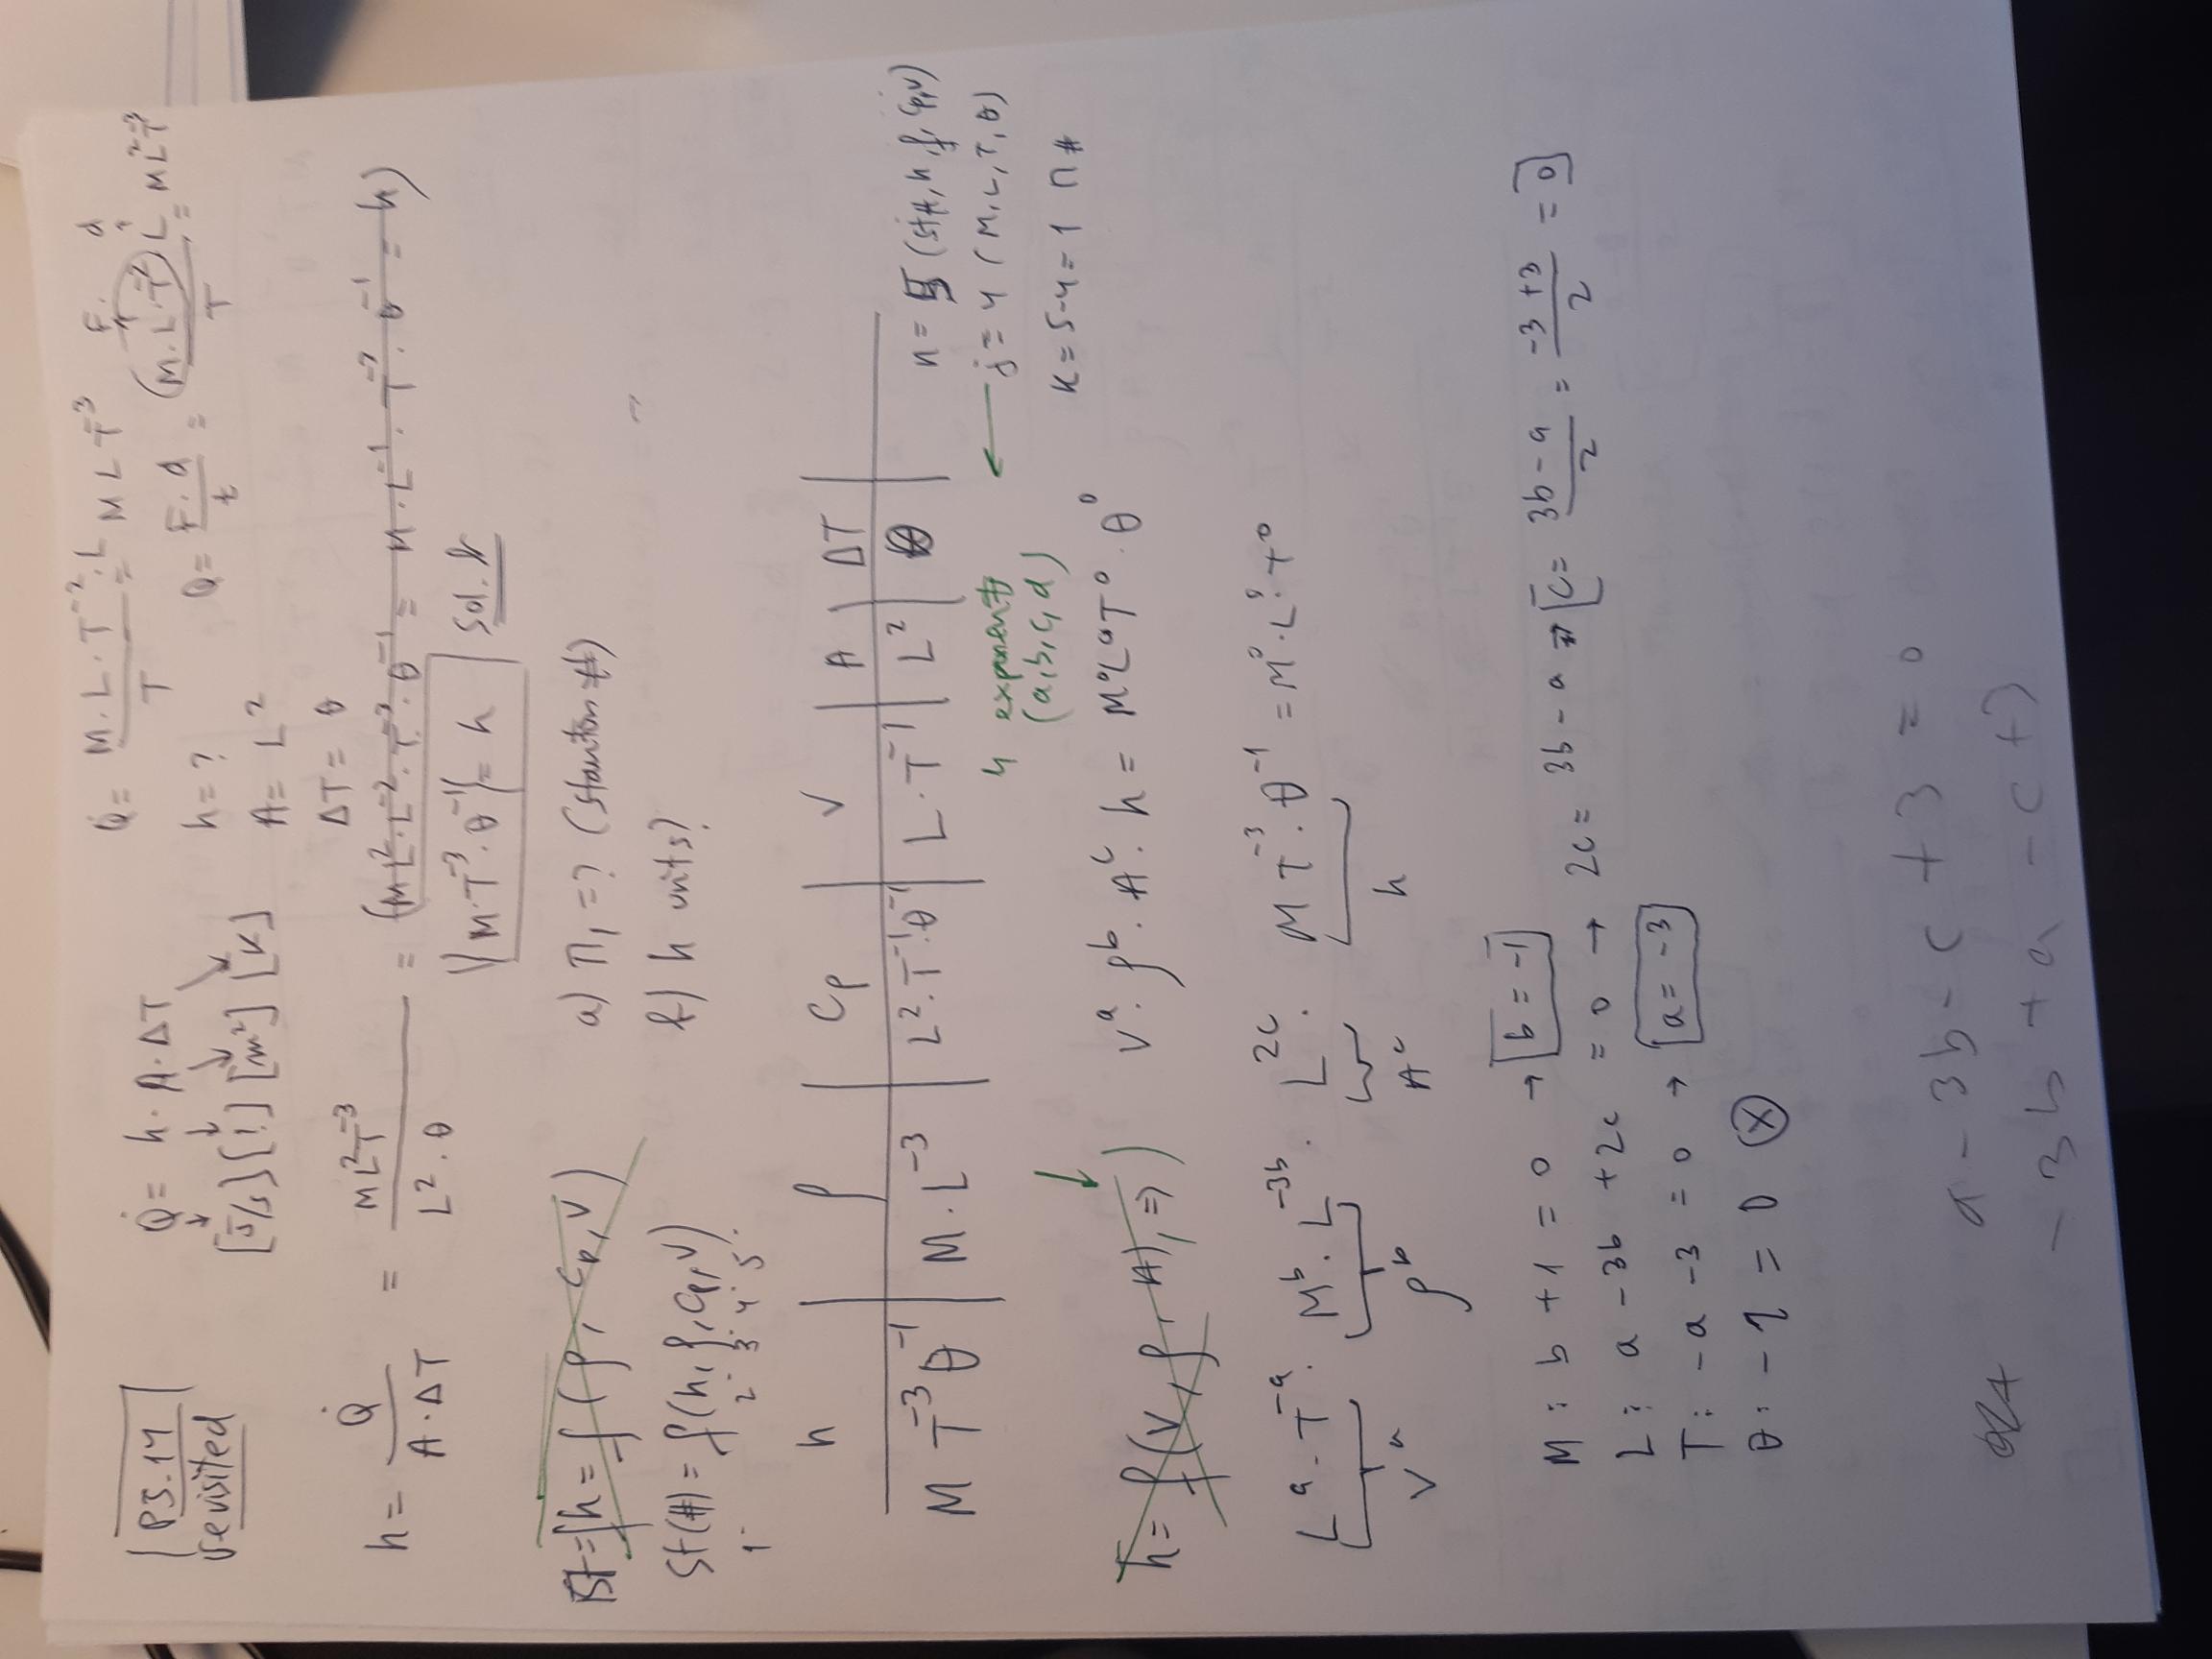 P5.14
revisited
Q̇ = h · A · ΔT
[J/s] [?] [m²] [K]
Q̇ = M·L·T⁻²·L / T = M L T⁻³
h = ?
A = L²
ΔT = θ
F. d
Q = F·d / t = (M·L·T⁻²) L / T = ML²T⁻³
h = Q̇ / A·ΔT = ML²T⁻³ / L²·θ = (ML²·L⁻²·T⁻³·θ⁻¹ = M·L⁻¹·T⁻³·θ⁻¹ = h)
M·T⁻³·θ⁻¹ = h Sol. b
St = f h = f (ρ, cp, V)
a) Π₁ = ? (Stanton #)
St(#) = f(h, ρ, cp, V)
1 2 3 4 5
b) h units?
h | ρ | cp | V | A | ΔT
M T⁻³ θ⁻¹ | M·L⁻³ | L²·T⁻¹·θ⁻¹ | L·T⁻¹ | L² | θ
n = 5 (st#, h, ρ, cp, v)
4 exponents ← j = 4 (M, L, T, θ)
(a, b, c, d)
k = 5-4 = 1 Π #
h = f(V, ρ, A), ⇒)
Vᵃ · ρᵇ · Aᶜ · h = M⁰L⁰T⁰ · θ⁰
Lᵃ · T⁻ᵃ · Mᵇ · L⁻³ᵇ · L²ᶜ · M T⁻³ · θ⁻¹ = M⁰·L⁰·T⁰
Vᵃ ρᵇ Aᶜ h
M: b + 1 = 0 → b = -1
L: a - 3b + 2c = 0 → 2c = 3b - a ⇒ [c = 3b - a / 2 = -3 + 3 / 2 = 0]
T: -a - 3 = 0 → a = -3
θ: -1 = 0 ⊗
a - 3b - c + 3 = 0
- 3b + a - c + 3